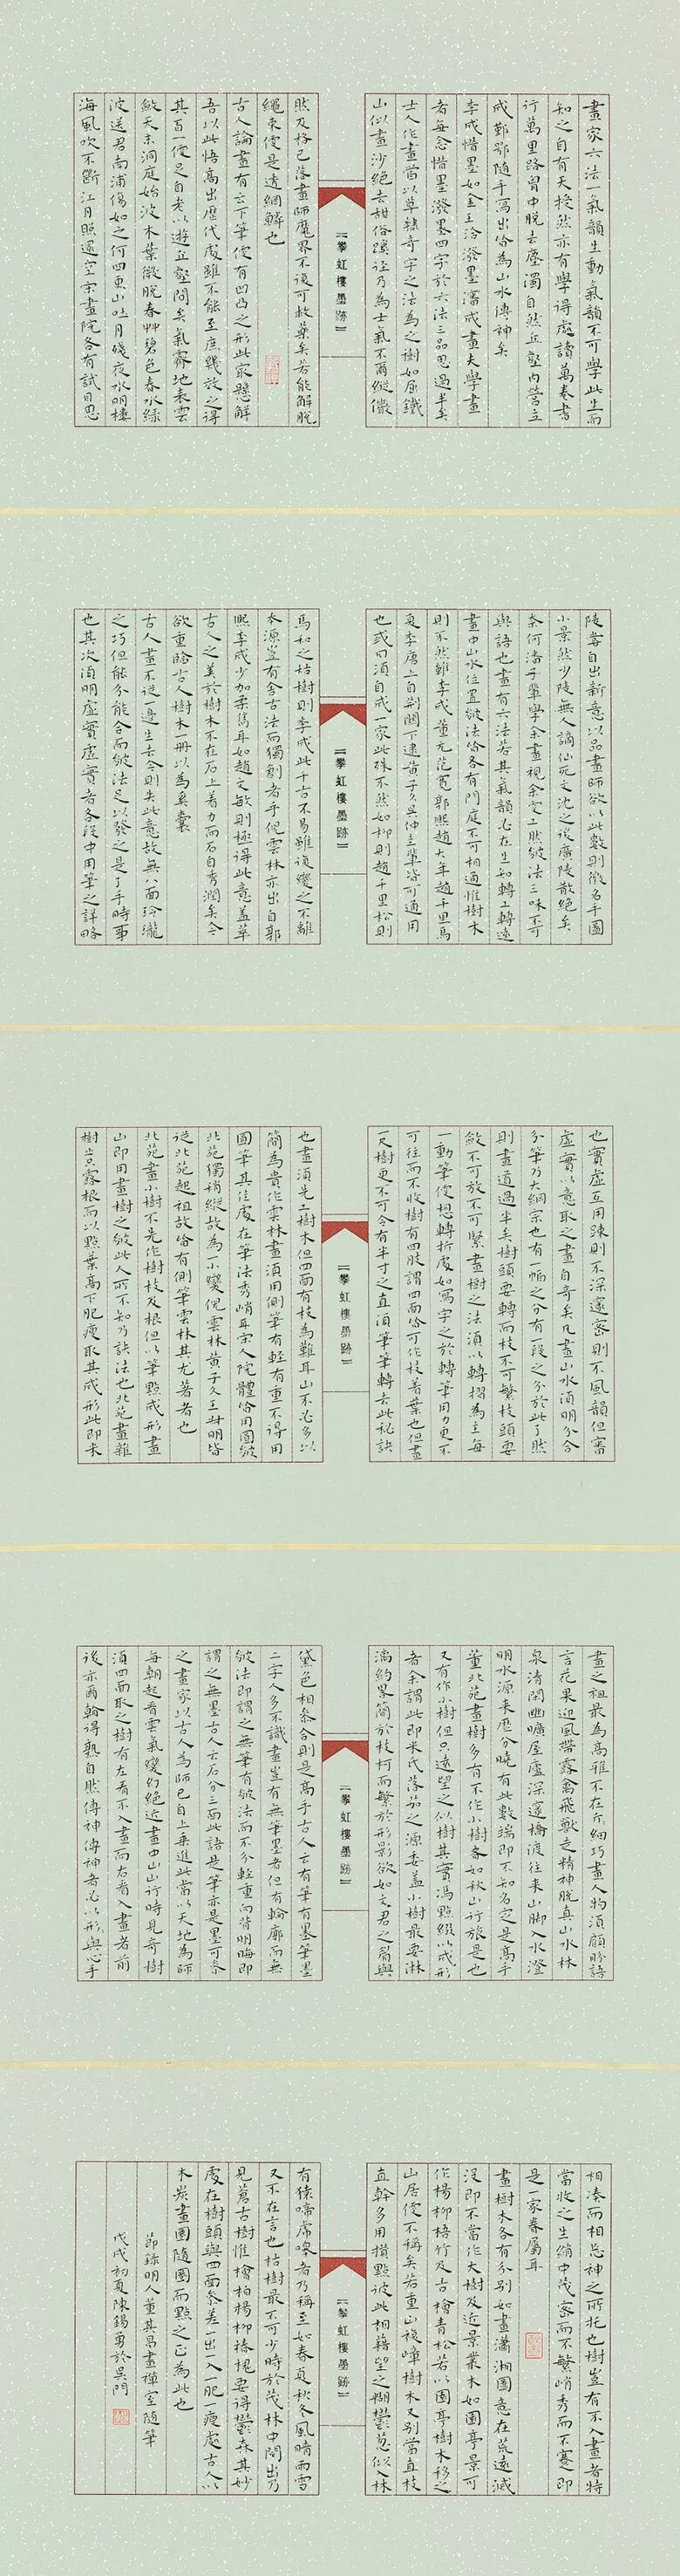 畫家六法一氣韻生動氣韻不可學此生而
知之自有天授然亦有學得處讀萬卷書
行萬里路胷中脫去塵濁自然丘壑內營立
成鄞鄂隨手寫出皆為山水傳神矣
李成惜墨如金王洽潑墨瀋成畫夫學畫
者每念惜墨潑墨四字於六法三品思過半矣
士人作畫當以草隸奇字之法為之樹如屈鐵
山似畫沙絕去甜俗蹊徑乃為士氣不爾縱儼
攀虹樓墨跡
然及格已落畫師魔界不復可救藥矣若能解脫
繩束便是透網鱗也
古人論畫有云下筆便有凹凸之形此最懸解
吾以此悟高出歷代處雖不能至庶幾效之得
其百一便足自老以遊丘壑間矣氣霽地表雲
斂天末洞庭始波木葉微脫春艸碧色春水綠
波送君南浦傷如之何四更山吐月殘夜水明樓
海風吹不斷江月照還空宋畫院各有試目思
陵嘗自出新意以品畫師欲以此數則徵名手圖
小景然少陵無人謫仙死文沈之後廣陵散絕矣
奈何潘子輩學余畫視余更工然皴法三昧不可
與語也畫有六法若其氣韻必在生知轉工轉遠
畫中山水位置皴法皆各有門庭不可相通惟樹木
則不然雖李成董元范寬郭熙趙大年趙千里馬
夏李唐上自荊關下逮黃子久吳仲圭輩皆可通用
也或曰須自成一家此殊不然如柳則趙千里松則
攀虹樓墨跡
馬和之枯樹則李成此千古不易雖復變之不離
本源豈有舍古法而獨創者乎倪雲林亦出自郭
熙李成少加柔雋耳如趙文敏則極得此意蓋萃
古人之美於樹木不在石上着力而石自秀潤矣今
欲重臨古人樹木一冊以為奚囊
古人畫不從一邊生去今則失此意故無八面玲瓏
之巧但能分能合而皴法足以發之是了手時事
也其次須明虛實虛實者各段中用筆之詳略
也實虛互用踈則不深邃密則不風韻但審
虛實以意取之畫自奇矣凡畫山水須明分合
分筆乃大綱宗也有一幅之分有一段之分於此了然
則畫道過半矣樹頭要轉而枝不可繁枝頭要
斂不可放不可緊畫樹之法須以轉摺為主每
一動筆便想轉折處如寫字之於轉筆用力更不
可往而不收樹有四股謂四面皆可作枝着葉也但畫
一尺樹更不可令有半寸之直須筆筆轉去此秘訣
攀虹樓墨跡
也畫須先工樹木但四面有枝為難耳山不必多以
簡為貴作雲林畫須用側筆有輕有重不得用
圓筆其佳處在筆法秀峭耳宋人院體皆用圓皴
北苑獨稍縱故為一小變倪雲林黃子久王叔明皆
從北苑起祖故皆有側筆雲林其尤著者也
北苑畫小樹不是作樹枝及根但以筆點成形畫
山即用畫樹之皴此人所不知乃訣法也北苑畫雜
樹止只露根而以點葉高下肥瘦取其成形此即米
畫之祖最為高雅不在斤斤細巧畫人物須顧盼語
言花果迎風帶露禽飛獸走精神脫真山水林
泉清閑幽曠屋廬深邃橋渡往來山脚入水澄
明水源來歷分曉有此數端即不知名定是高手
董北苑畫樹多有不作小樹者如秋山行旅是也
又有作小樹但只遠望之似樹其實馮點綴以成形
者余謂此即米氏落茄之源委蓋小樹最要淋
漓約畧簡於枝柯而繁於形影欲如文君之眉與
攀虹樓墨跡
黛色相參合則是高手古人云有筆有墨筆墨
二字人多不識畫豈有無筆墨者但有輪廓而無
皴法即謂之無筆有皴法而不分輕重向背明晦即
謂之無墨古人云石分三面此語是筆亦是墨可參
之畫家以古人為師已自上乘進此當以天地為師
每朝起看雲氣變幻絕近畫中山山行時見奇樹
須四面取之樹有左看不入畫而右看入畫者前
後亦爾看得熟自然傳神傳神者必以形與心手
相湊而相忘神之所托也樹豈有不入畫者特
當收之生綃中茂密而不繁峭秀而不蹇即
是一家眷屬耳
畫樹木各有分別如畫瀟湘圖意在荒遠滅
沒即不當作大樹及近景叢木如園亭景可
作楊柳梧竹及古檜青松若以園亭樹木移之
山居便不稱矣若重山複嶂樹木又別當直枝
直幹多用攢點彼此相藉望之糊鬱蔥似入林
攀虹樓墨跡
有猿啼虎嗥者乃稱至如春夏秋冬風晴雨雪
又不在言也枯樹最不可少時於茂林中間出乃
見蒼古樹惟檜柏楊柳椿槐要得鬱森其妙
處在樹頭與四面參差一出一入一肥一瘦處古人以
木炭畫圈隨圈而點之正為此也
節錄明人董其昌畫禪室隨筆
戊戌初夏陳錫勇於吳門